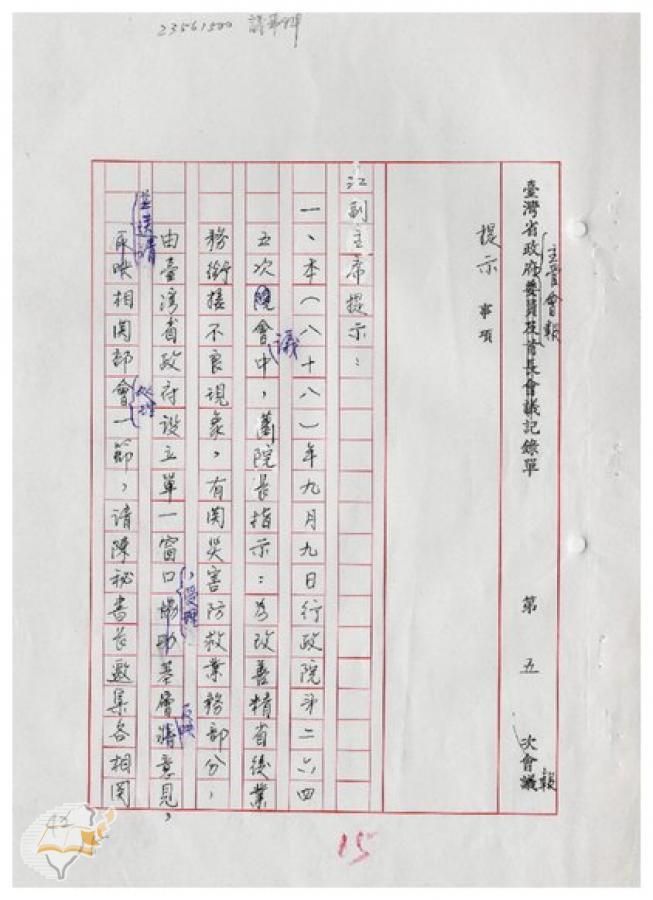 23561500 議事科
臺灣省政府委員及首長會議記錄單 第五次會議
主管會報
報
提示事項
江副主席提示：
一、本（八十八）年九月九日行政院第二六四
五次院會中，蕭院長指示：為改善精省後業
議
務銜接不良現象，有関災害防救業務部分，
由臺湾省政府設立單一窗口協助基層將意見，
，受理
反映
反映相関部會一節，請陳秘書長邀集各相関
並送請
處理
15